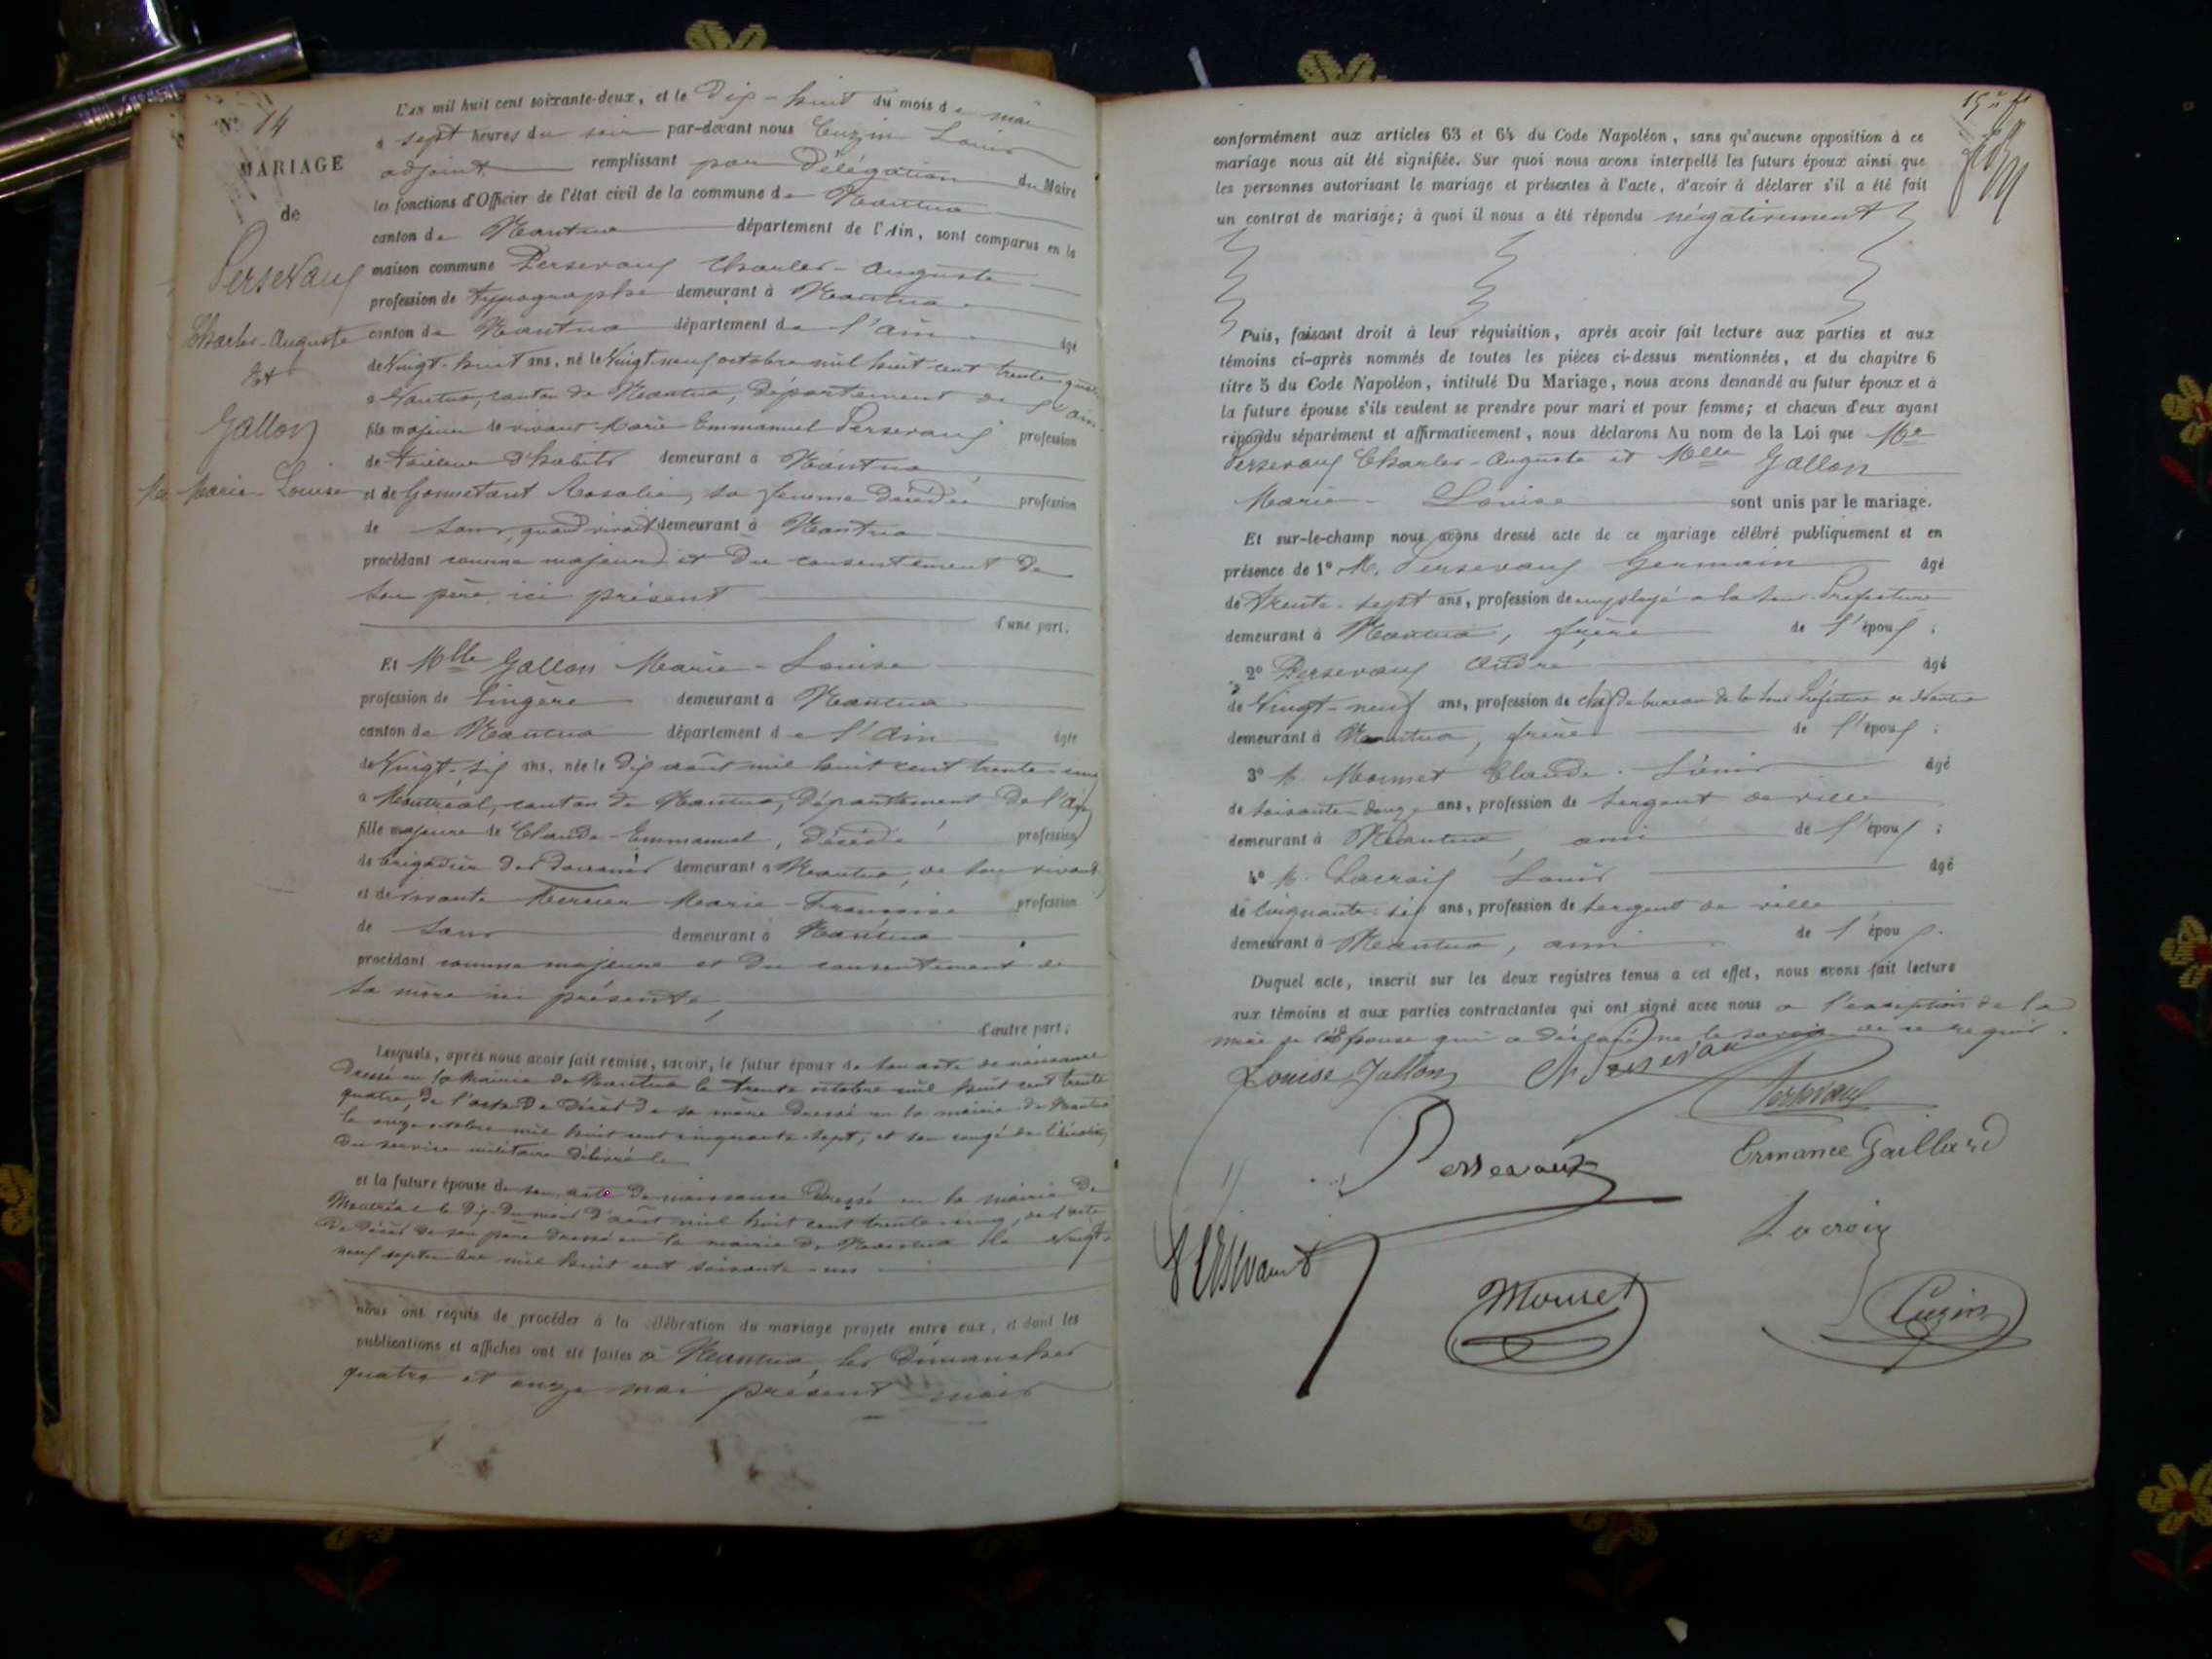 N° 14
MARIAGE
de
Persevaux
Charles-Auguste
Et
Gallon
Marie-Louise
L'an mil huit cent soixante-deux, et le dix-huit du mois de mai
à sept heures du soir par-devant nous Cuzin Louis
adjoint remplissant par délégation du Maire
les fonctions d'Officier de l'état civil de la commune de Nantua
canton de Nantua département de l'Ain, sont comparus en la
maison commune Persevaux Charles-Auguste
profession de typographe demeurant à Nantua
canton de Nantua département de l'Ain âgé
de Vingt-huit ans, né le Vingt-neuf octobre mil huit cent trente quatre
à Nantua, canton de Nantua, département de l'Ain
fils majeur de vivant Marie Emmanuel Persevaux profession
de tailleur d'habits demeurant à Nantua
et de Gonnetant Rosalie, sa femme décédée profession
de sans, quand vivait demeurant à Nantua
procédant comme majeur et du consentement de
son père ici présent
d'une part;
Et Mlle Gallon Marie-Louise
profession de lingère demeurant à Nantua
canton de Nantua département de l'Ain âgée
de Vingt-six ans, née le dix août mil huit cent trente cinq
à Montréal, canton de Nantua, département de l'Ain
fille majeure de Claude-Emmanuel, décédé profession
de brigadier des douanes demeurant à Nantua, de son vivant
et de vivante Mercier Marie-Françoise profession
de sans demeurant à Nantua
procédant comme majeure et du consentement de
sa mère ici présente,
d'autre part;
Lesquels, après nous avoir fait remise, savoir, le futur époux de son acte de naissance
dressé en la mairie de Nantua le trente octobre mil huit cent trente
quatre, de l'acte de décès de sa mère dressé en la mairie de Nantua
le onze octobre mil huit cent cinquante-sept, et son congé de libération
du service militaire délivré le
et la future épouse de son acte de naissance dressé en la mairie de
Montréal le dix du mois d'août mil huit cent trente-cinq, de l'acte
de décès de son père dressé en la mairie de Nantua le vingt-
neuf septembre mil huit cent soixante-un
nous ont requis de procéder à la célébration du mariage projeté entre eux, et dont les
publications et affiches ont été faites à Nantua les dimanches
quatre et onze mai présent mois
conformément aux articles 63 et 64 du Code Napoléon, sans qu'aucune opposition à ce
mariage nous ait été signifiée. Sur quoi nous avons interpellé les futurs époux ainsi que
les personnes autorisant le mariage et présentes à l'acte, d'avoir à déclarer s'il a été fait
un contrat de mariage; à quoi il nous a été répondu négativement
Puis, faisant droit à leur réquisition, après avoir fait lecture aux parties et aux
témoins ci-après nommés de toutes les pièces ci-dessus mentionnées, et du chapitre 6
titre 5 du Code Napoléon, intitulé Du Mariage, nous avons demandé au futur époux et à
la future épouse s'ils veulent se prendre pour mari et pour femme; et chacun d'eux ayant
répondu séparément et affirmativement, nous déclarons Au nom de la Loi que Mr
Persevaux Charles-Auguste et Melle Gallon
Marie-Louise sont unis par le mariage.
Et sur-le-champ nous avons dressé acte de ce mariage célébré publiquement et en
présence de 1° M. Persevaux Germain âgé
de trente-sept ans, profession de employé à la Sous-Préfecture
demeurant à Nantua, frère de l'époux;
2° Persevaux André âgé
de Vingt-neuf ans, profession de chef de bureau de la Sous Préfecture de Nantua
demeurant à Nantua, frère de l'époux;
3° M. Mornet Claude âgé
de soixante-douze ans, profession de sergent de ville
demeurant à Nantua, ami de l'époux;
4° M. Lacroix Louis âgé
de cinquante-six ans, profession de sergent de ville
demeurant à Nantua, ami de l'époux.
Duquel acte, inscrit sur les deux registres tenus à cet effet, nous avons fait lecture
aux témoins et aux parties contractantes qui ont signé avec nous à l'exception de la
mère de l'épouse qui a déclaré ne le savoir de ce requis.
Louise Gallon Ch Persevaux
Persevaux
Persevaux Ermance Gaillard
Lacroix
Persevaux
Mornet Cuzin